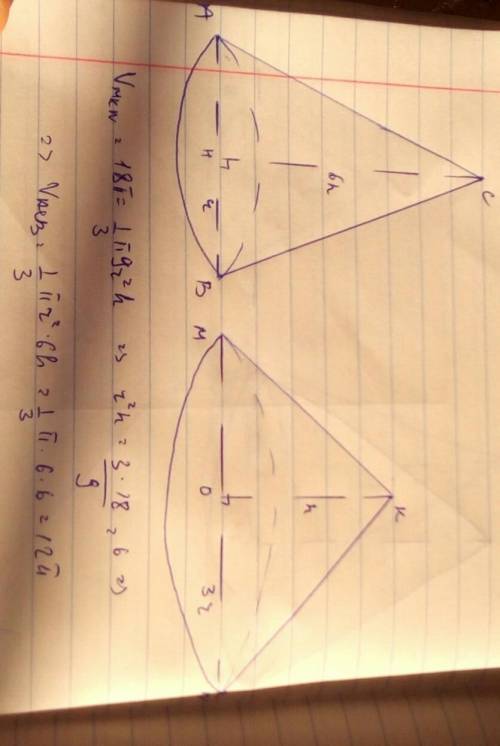 A
H
r
B
6h
C
M
O
3r
h
K
V_MKN = 18π = 1/3 π 9r² h => r²h = 3·18/9 = 6 =>
=> V_ACB = 1/3 π r² · 6h = 1/3 π · 6 · 6 = 12π